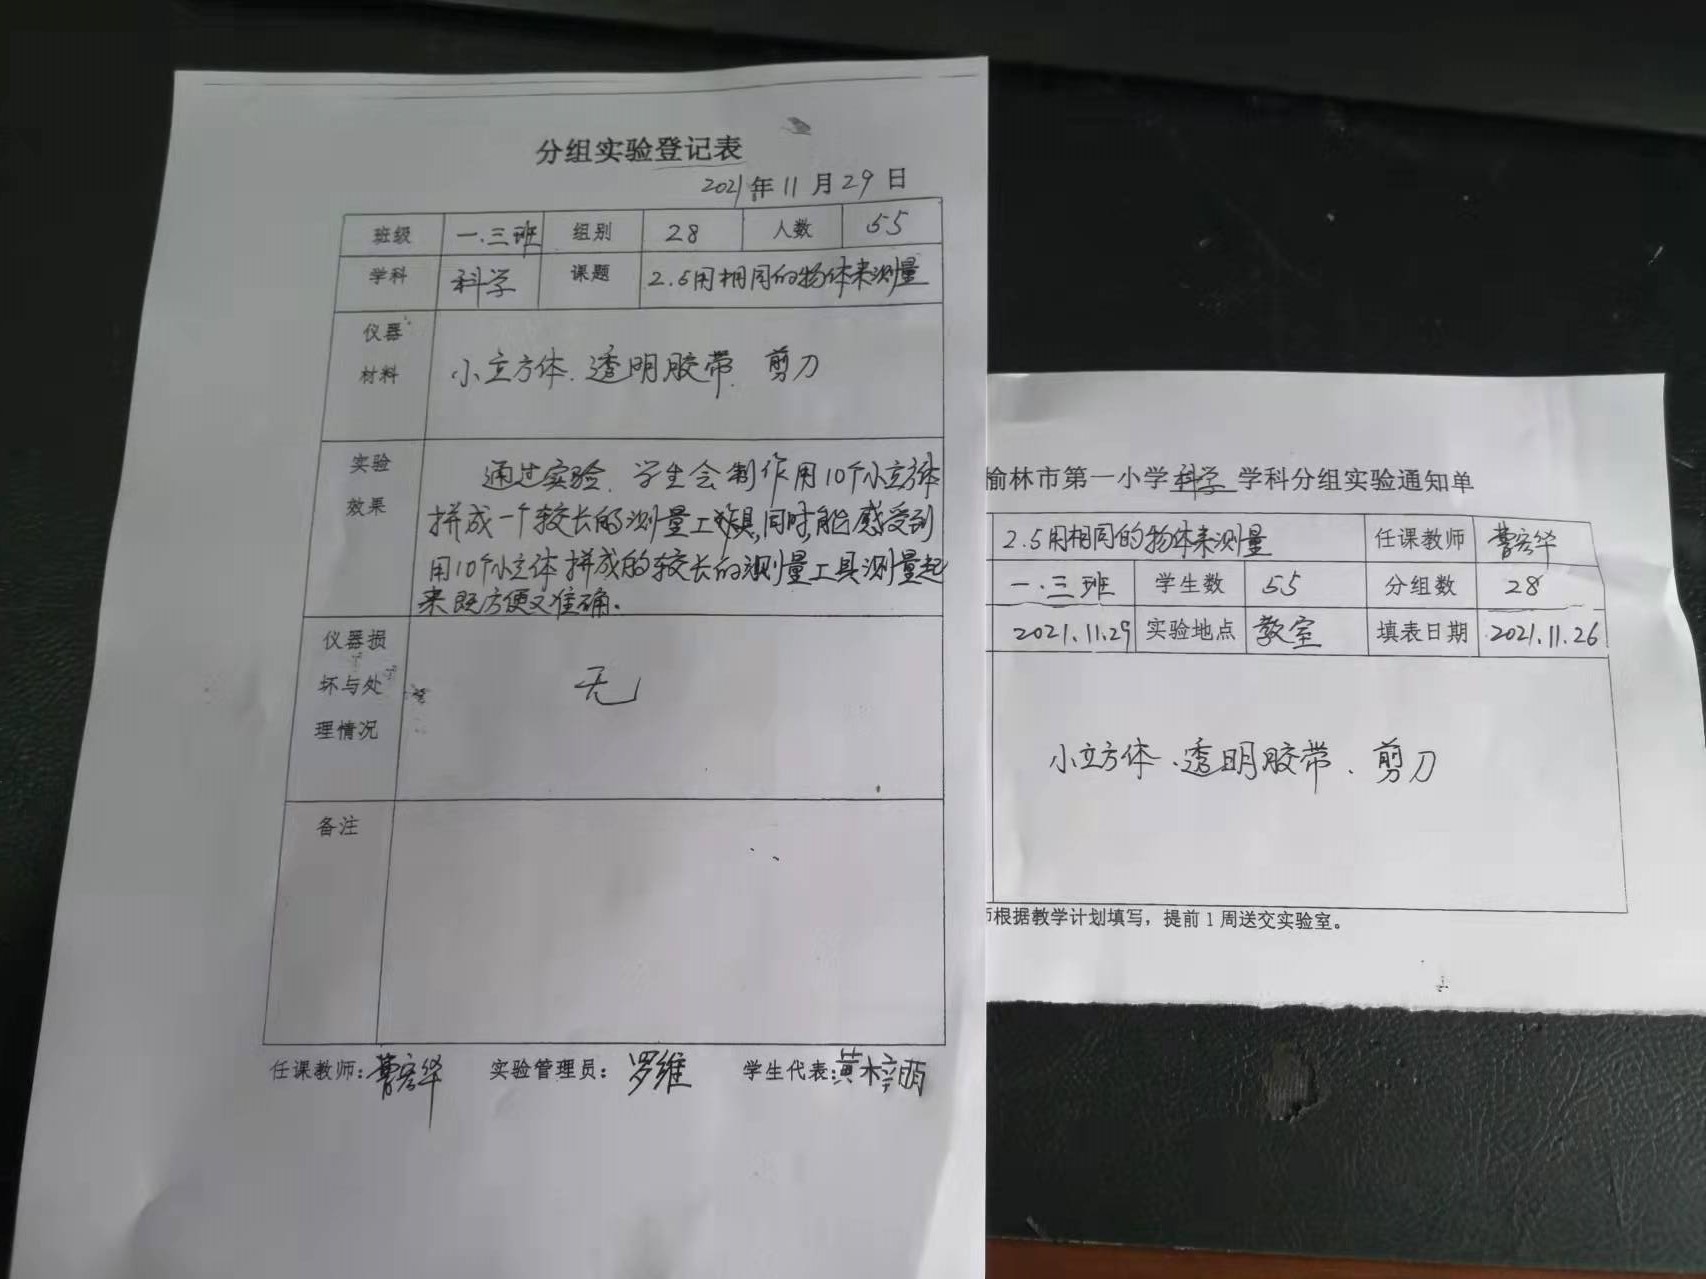 分组实验登记表
2021年11月29日
班级 一.三班 组别 28 人数 55
学科 科学 课题 2.5用相同的物体来测量
仪器
材料
小立方体、透明胶带、剪刀
实验
效果
通过实验,学生会制作用10个小立方体
拼成一个较长的测量工具,同时,能感受到
用10个小立体拼成的较长的测量工具测量起
来既方便又准确。
仪器损
坏与处
理情况
无
备注
任课教师:曹宏华 实验管理员:罗维 学生代表:黄梓雨
榆林市第一小学科学学科分组实验通知单
2.5用相同的物体来测量 任课教师 曹宏华
一.三班 学生数 55 分组数 28
2021.11.29 实验地点 教室 填表日期 2021.11.26
小立方体、透明胶带、剪刀
师根据教学计划填写,提前1周送交实验室。